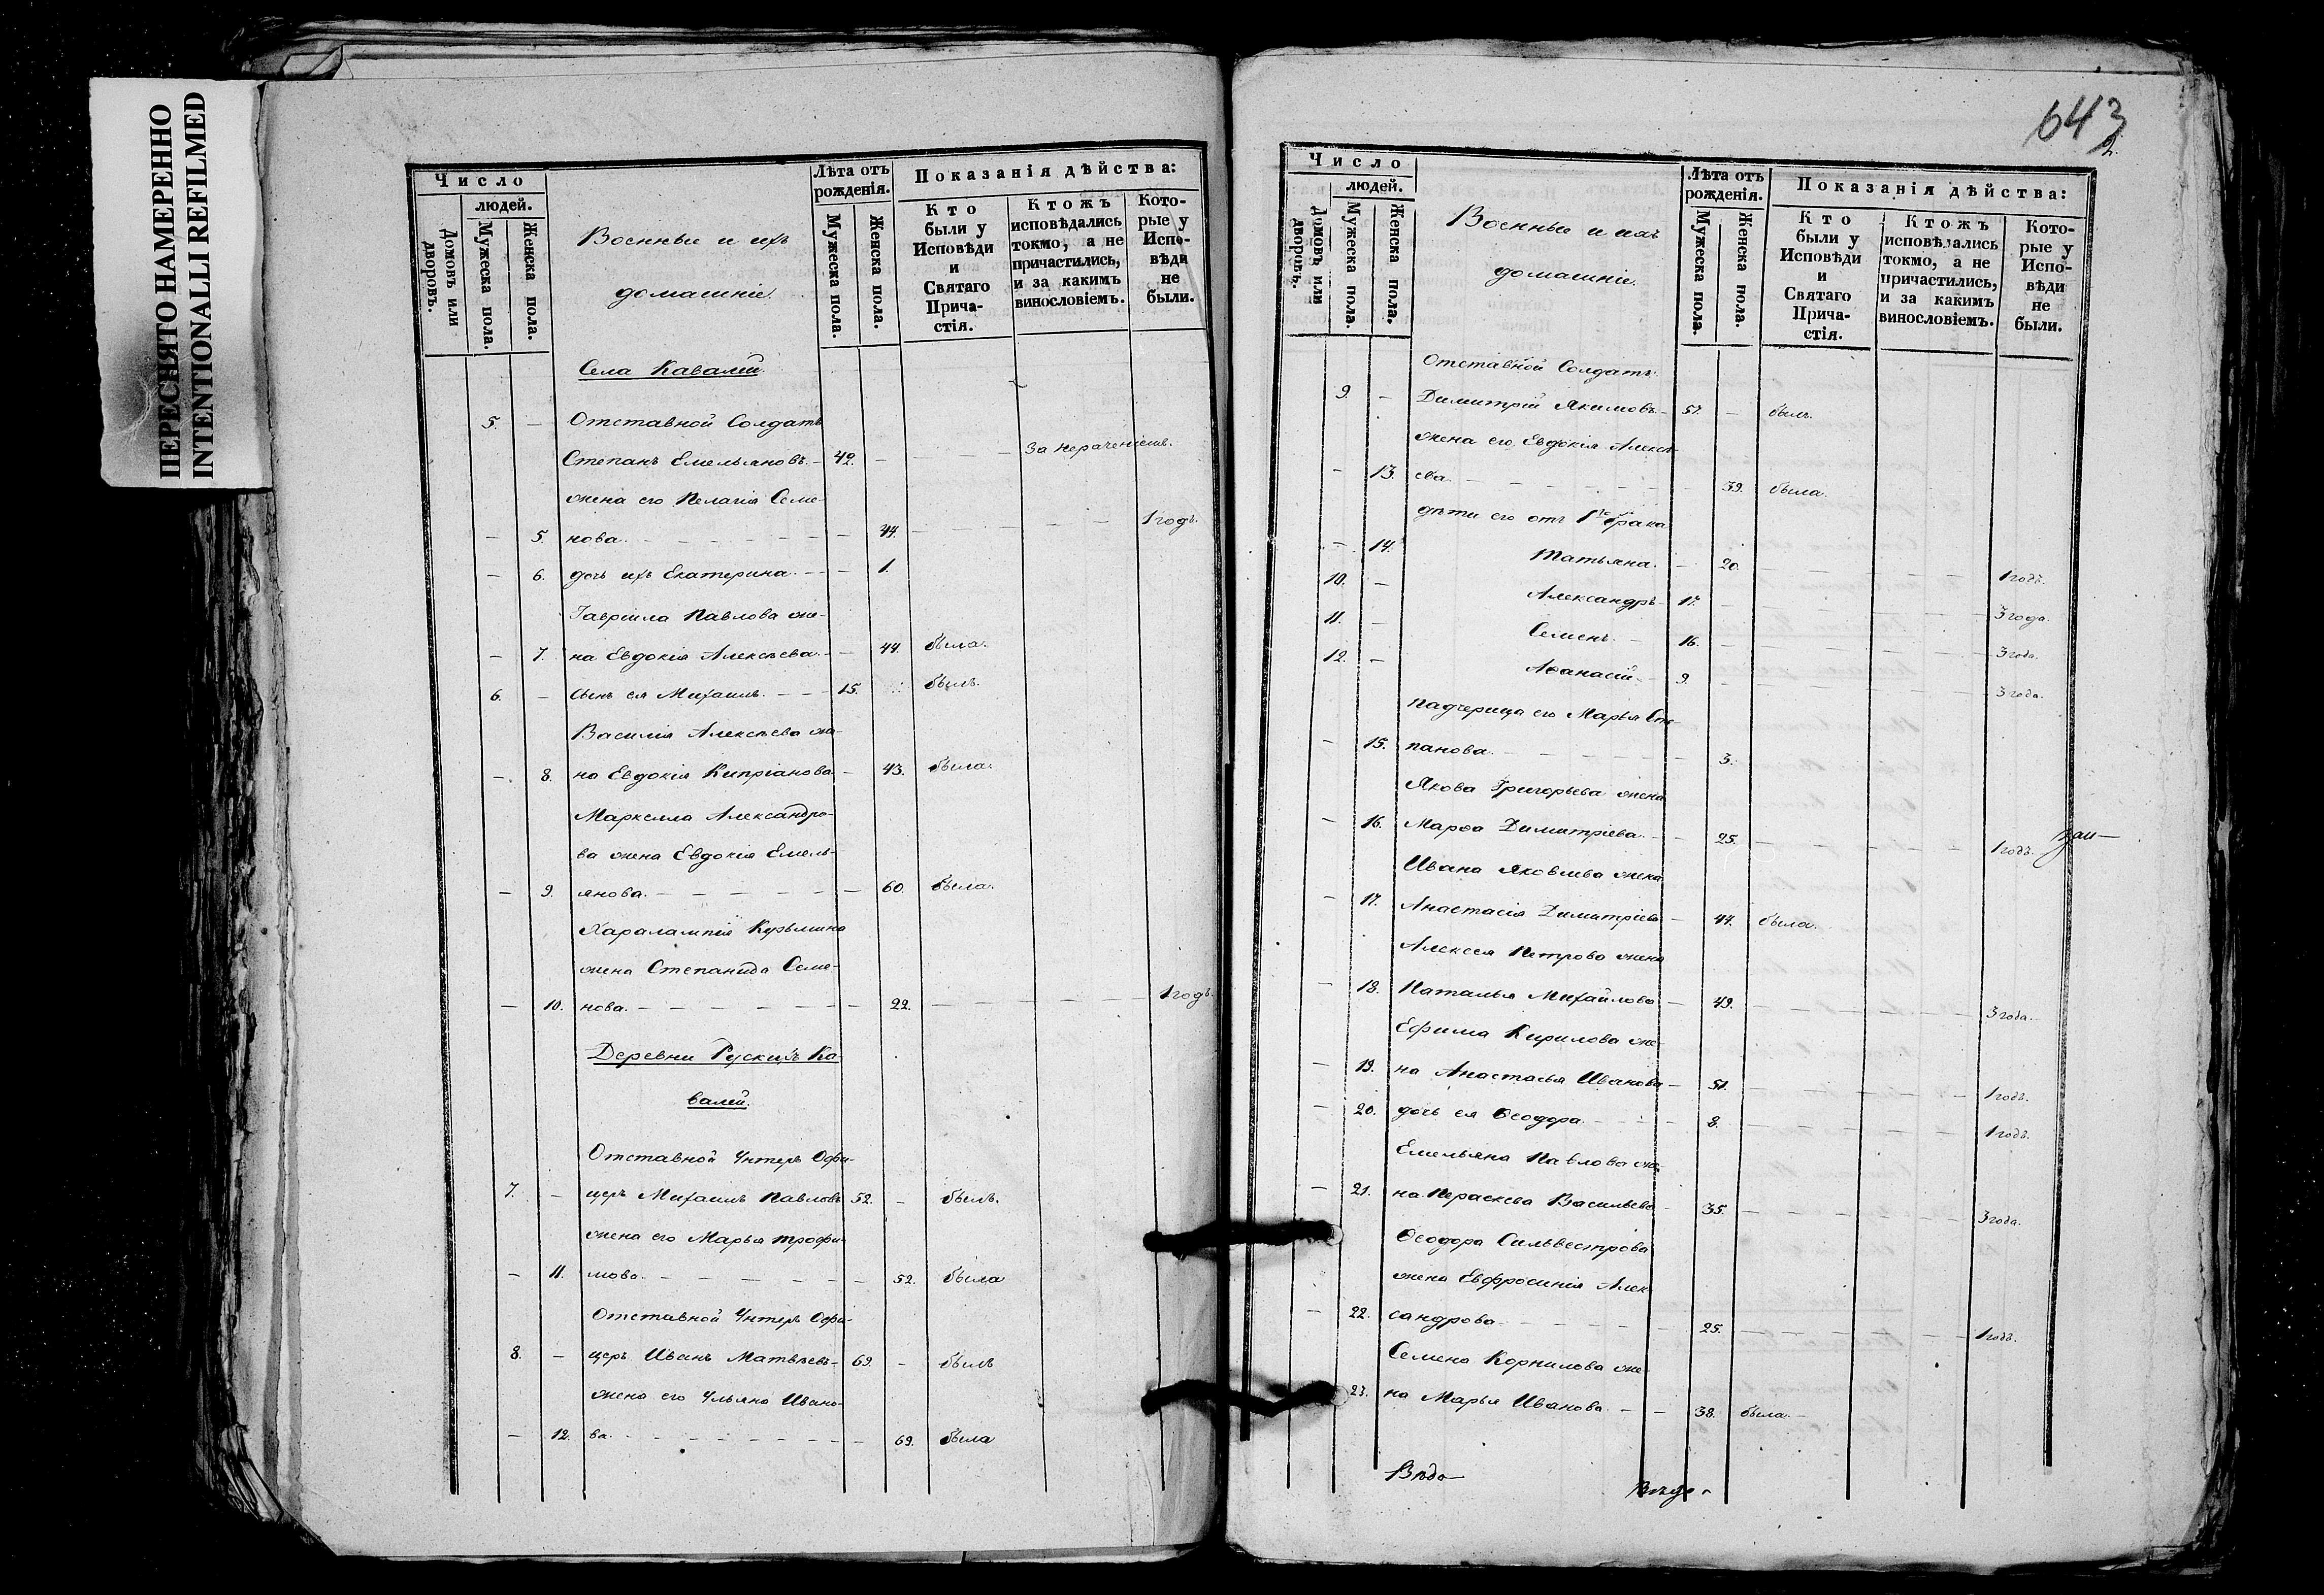 ПЕРЕСНЯТО НАМЕРЕННО
INTENTIONALLI REFILMED
Число
людей.
Домовъ или дворовъ.
Мужеска пола.
Женска пола.
Военные и ихъ
домашніе.
Лѣта отъ рожденія.
Мужеска пола.
Женска пола.
Показанія дѣйства:
Кто были у Исповѣди и Святаго Причастія.
Ктожъ исповѣдались токмо, а не причастились, и за какимъ винословіемъ.
Которые у Исповѣди не были.
Села Кавалей
5. — Отставной Солдатъ
Степанъ Емельяновъ. — 42. — — — — За нераченіемъ.
жена его Пелагія Семе-
— 5. нова. — — — — — — — 44. — — — — 1 годъ.
— 6. дочь ихъ Екатерина. — — — 1.
Гавріила Павлова же-
— 7. на Евдокія Алексѣева. — — 44. была.
6. — Сынъ ея Михаилъ. — — — 15. былъ.
Василія Алексѣева же-
— 8. на Евдокія Кипріанова — 43. была.
Маркелла Александро-
ва жена Евдокія Емель-
— 9. янова. — — — — — — — 60. была.
Харалампія Кузьмина
жена Степанида Семе-
— 10. нова. — — — — — — — 22. — — — — 1 годъ.
Деревни Рускихъ Ка-
валей.
Отставной Унтеръ Офи-
7. — церъ Михаилъ Павловъ 52. — былъ.
жена его Марья Трофи-
— 11. мова. — — — — — — — 52. была
Отставной Унтеръ Офи-
8. — церъ Иванъ Матвѣевъ — 69. — былъ
жена его Ульяна Ивано-
— 12. ва. — — — — — — — — 69. была
643
2.
Число
людей.
Домовъ или дворовъ.
Мужеска пола.
Женска пола.
Военные и ихъ
домашніе.
Лѣта отъ рожденія.
Мужеска пола.
Женска пола.
Показанія дѣйства:
Кто были у Исповѣди и Святаго Причастія.
Ктожъ исповѣдались токмо, а не причастились, и за какимъ винословіемъ.
Которые у Исповѣди не были.
Отставной Солдатъ
9. — Димитрій Якимовъ — 57. — былъ.
жена его Евдокія Алексѣ-
— 13. ева. — — — — — — — 39. была.
дѣти его отъ 1го брака
— 14. Татьяна. — 20. — — — — 1 годъ.
10. — Александръ — 17. — — — — 3 года.
11. — Семенъ. — 16. — — — — 3 года.
12. — Аѳанасій. — 9. — — — — 3 года.
падчерица его Марья Сте-
— 15. панова. — — — — — — 3.
Якова Григорьева жена
— 16. Марѳа Димитріева. — — 25. — — — — 1 годъ.
Ивана Яковлева жена
— 17. Анастасія Димитріева — 44. была.
Алексея Петрова жена
— 18. Наталья Михайлова — 49. — — — — 3 года.
Ефима Кирилова же-
— 19. на Анастасья Иванова — 51. — — — — 1 годъ.
— 20. дочь ея Ѳеодора. — — — 8. — — — — 1 годъ.
Емельяна Павлова же-
— 21. на Параскева Васильева — 35. — — — — 3 года.
Ѳеодора Сильвестрова
жена Евфросинія Алек-
— 22. сандрова. — — — — — — 25. — — — — 1 годъ.
Семена Корнилова же-
23. на Марья Иванова. — — 38. была. —
Вѣдо-